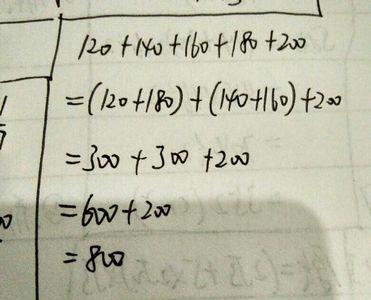 120+140+160+180+200
=(120+180)+(140+160)+200
=300+300+200
=600+200
=800